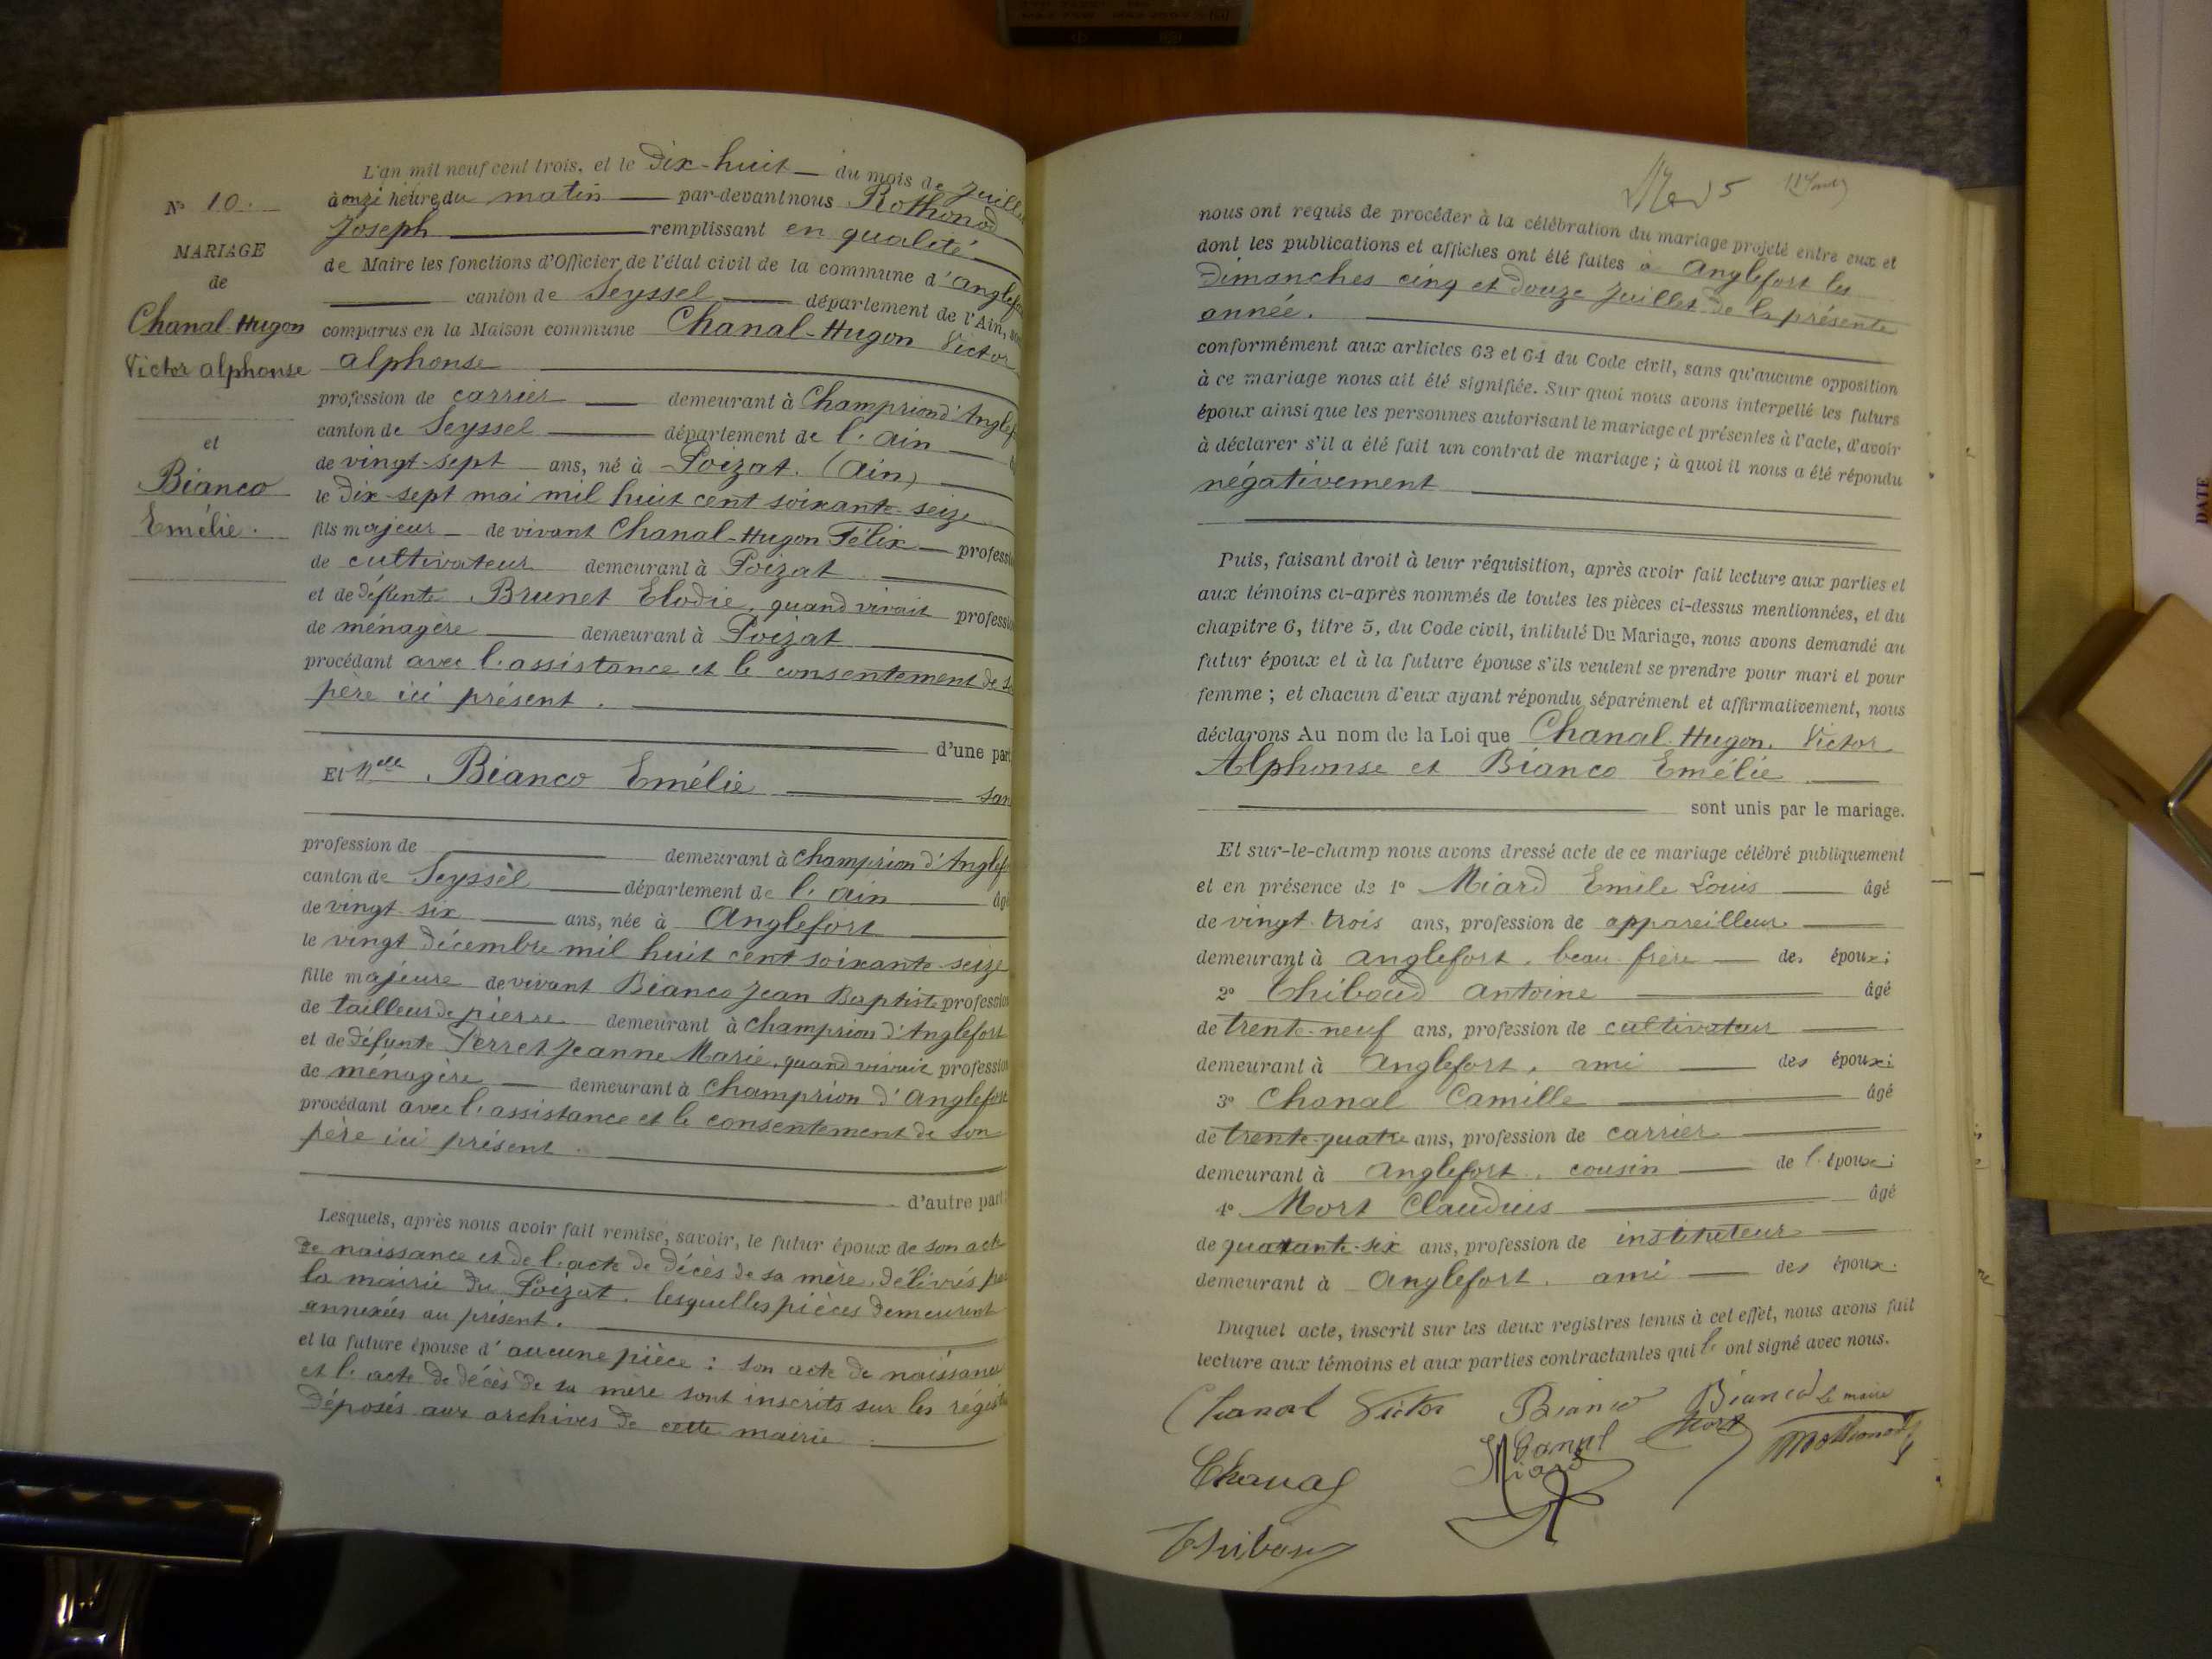 L'an mil neuf cent trois, et le Dix-huit du mois de Juillet
à onze heures du matin par-devant nous Rothonod
Joseph remplissant en qualité
de Maire les fonctions d'Officier de l'état civil de la commune d'Anglefort
canton de Seyssel département de l'Ain,
comparus en la Maison commune Chanal-Hugon Victor
Alphonse
profession de carrier demeurant à Champrion d'Anglef
canton de Seyssel département de l'Ain
de vingt-sept ans, né à Poizat. (Ain)
le Dix-sept mai mil huit cent soixante-seize
fils majeur de vivant Chanal-Hugon Félix profession
de cultivateur demeurant à Poizat
et de défunte Brunet Elodie, quand vivait profession
de ménagère demeurant à Poizat
procédant avec l'assistance et le consentement de so
père ici présent.
d'une part
Et Delle Bianco Emélie san
profession de demeurant à Champrion d'Anglef
canton de Seyssel département de l'Ain âgé
de vingt-six ans, née à Anglefort
le vingt décembre mil huit cent soixante-seize
fille majeure de vivant Bianco Jean Baptiste profession
de tailleur de pierre demeurant à Champrion d'Anglefort
et de défunte Perret Jeanne Marie, quand vivait profession
de ménagère demeurant à Champrion d'Anglefort
procédant avec l'assistance et le consentement de son
père ici présent
d'autre part
Lesquels, après nous avoir fait remise, savoir, le futur époux de son acte
de naissance et de l'acte de décès de sa mère, délivrés par
la mairie du Poizat, lesquelles pièces demeurent
annexées au présent.
et la future épouse d'aucune pièce : son acte de naissance
et l'acte de décès de sa mère sont inscrits sur les régist
déposés aux archives de cette mairie
N° 10.
MARIAGE
de
Chanal-Hugon
Victor Alphonse
et
Bianco
Emélie.
5
nous ont requis de procéder à la célébration du mariage projeté entre eux et
dont les publications et affiches ont été faites à Anglefort les
Dimanches cinq et douze Juillet de la présente
année.
conformément aux articles 63 et 64 du Code civil, sans qu'aucune opposition
à ce mariage nous ait été signifiée. Sur quoi nous avons interpellé les futurs
époux ainsi que les personnes autorisant le mariage et présentes à l'acte, d'avoir
à déclarer s'il a été fait un contrat de mariage ; à quoi il nous a été répondu
négativement
Puis, faisant droit à leur réquisition, après avoir fait lecture aux parties et
aux témoins ci-après nommés de toutes les pièces ci-dessus mentionnées, et du
chapitre 6, titre 5, du Code civil, intitulé Du Mariage, nous avons demandé au
futur époux et à la future épouse s'ils veulent se prendre pour mari et pour
femme ; et chacun d'eux ayant répondu séparément et affirmativement, nous
déclarons Au nom de la Loi que Chanal-Hugon, Victor
Alphonse et Bianco Emélie
sont unis par le mariage.
Et sur-le-champ nous avons dressé acte de ce mariage célébré publiquement
et en présence de 1° Miard Emile Louis âgé
de vingt-trois ans, profession de appareilleur
demeurant à Anglefort, beau-frère des époux;
2° Thiboud Antoine âgé
de trente-neuf ans, profession de cultivateur
demeurant à Anglefort, ami des époux;
3° Chanal Camille âgé
de trente-quatre ans, profession de carrier
demeurant à Anglefort, cousin de l'époux;
4° Mort Claudius âgé
de quarante-six ans, profession de instituteur
demeurant à Anglefort, ami des époux.
Duquel acte, inscrit sur les deux registres tenus à cet effet, nous avons fait
lecture aux témoins et aux parties contractantes qui l' ont signé avec nous.
Chanal Victor Bianco Bianco Le maire
Chanal Mort Rothonod
Chanal Miard
Thiboud
DATE